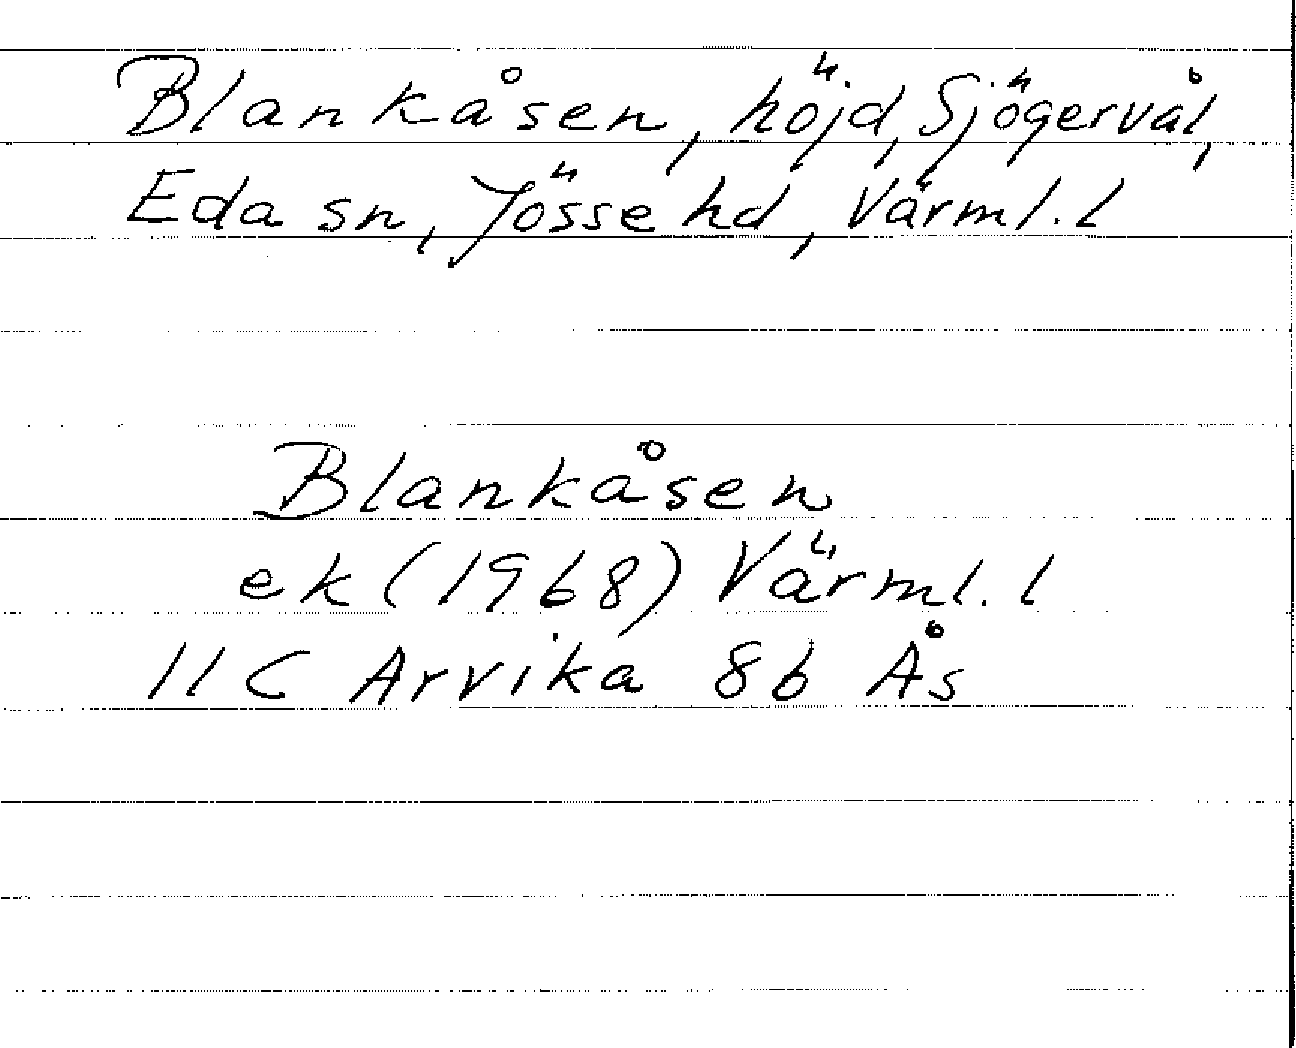 Blankåsen, höjd, Sjögervål,
Eda sn, Jösse hd, Värml. l
Blankåsen
ek (1968) Värml. l
11 C Arvika 8b Ås